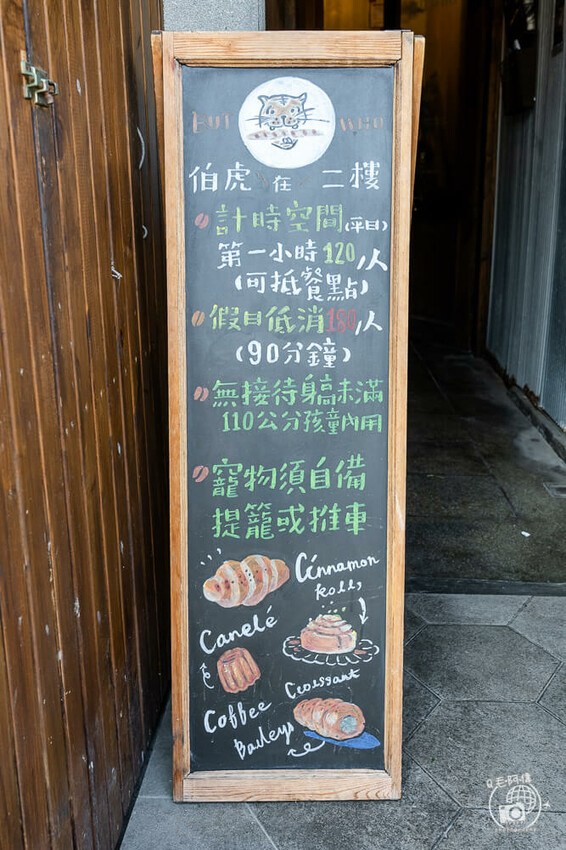 BUT WHO
伯虎在二樓
計時空間(平日)
第一小時120/人
(可抵餐點)
假日低消180/人
(90分鐘)
無接待身高未滿
110公分孩童內用
寵物須自備
提籠或推車
Cinnamon
roll,
Canelé
Croissant
Coffee
Baileys